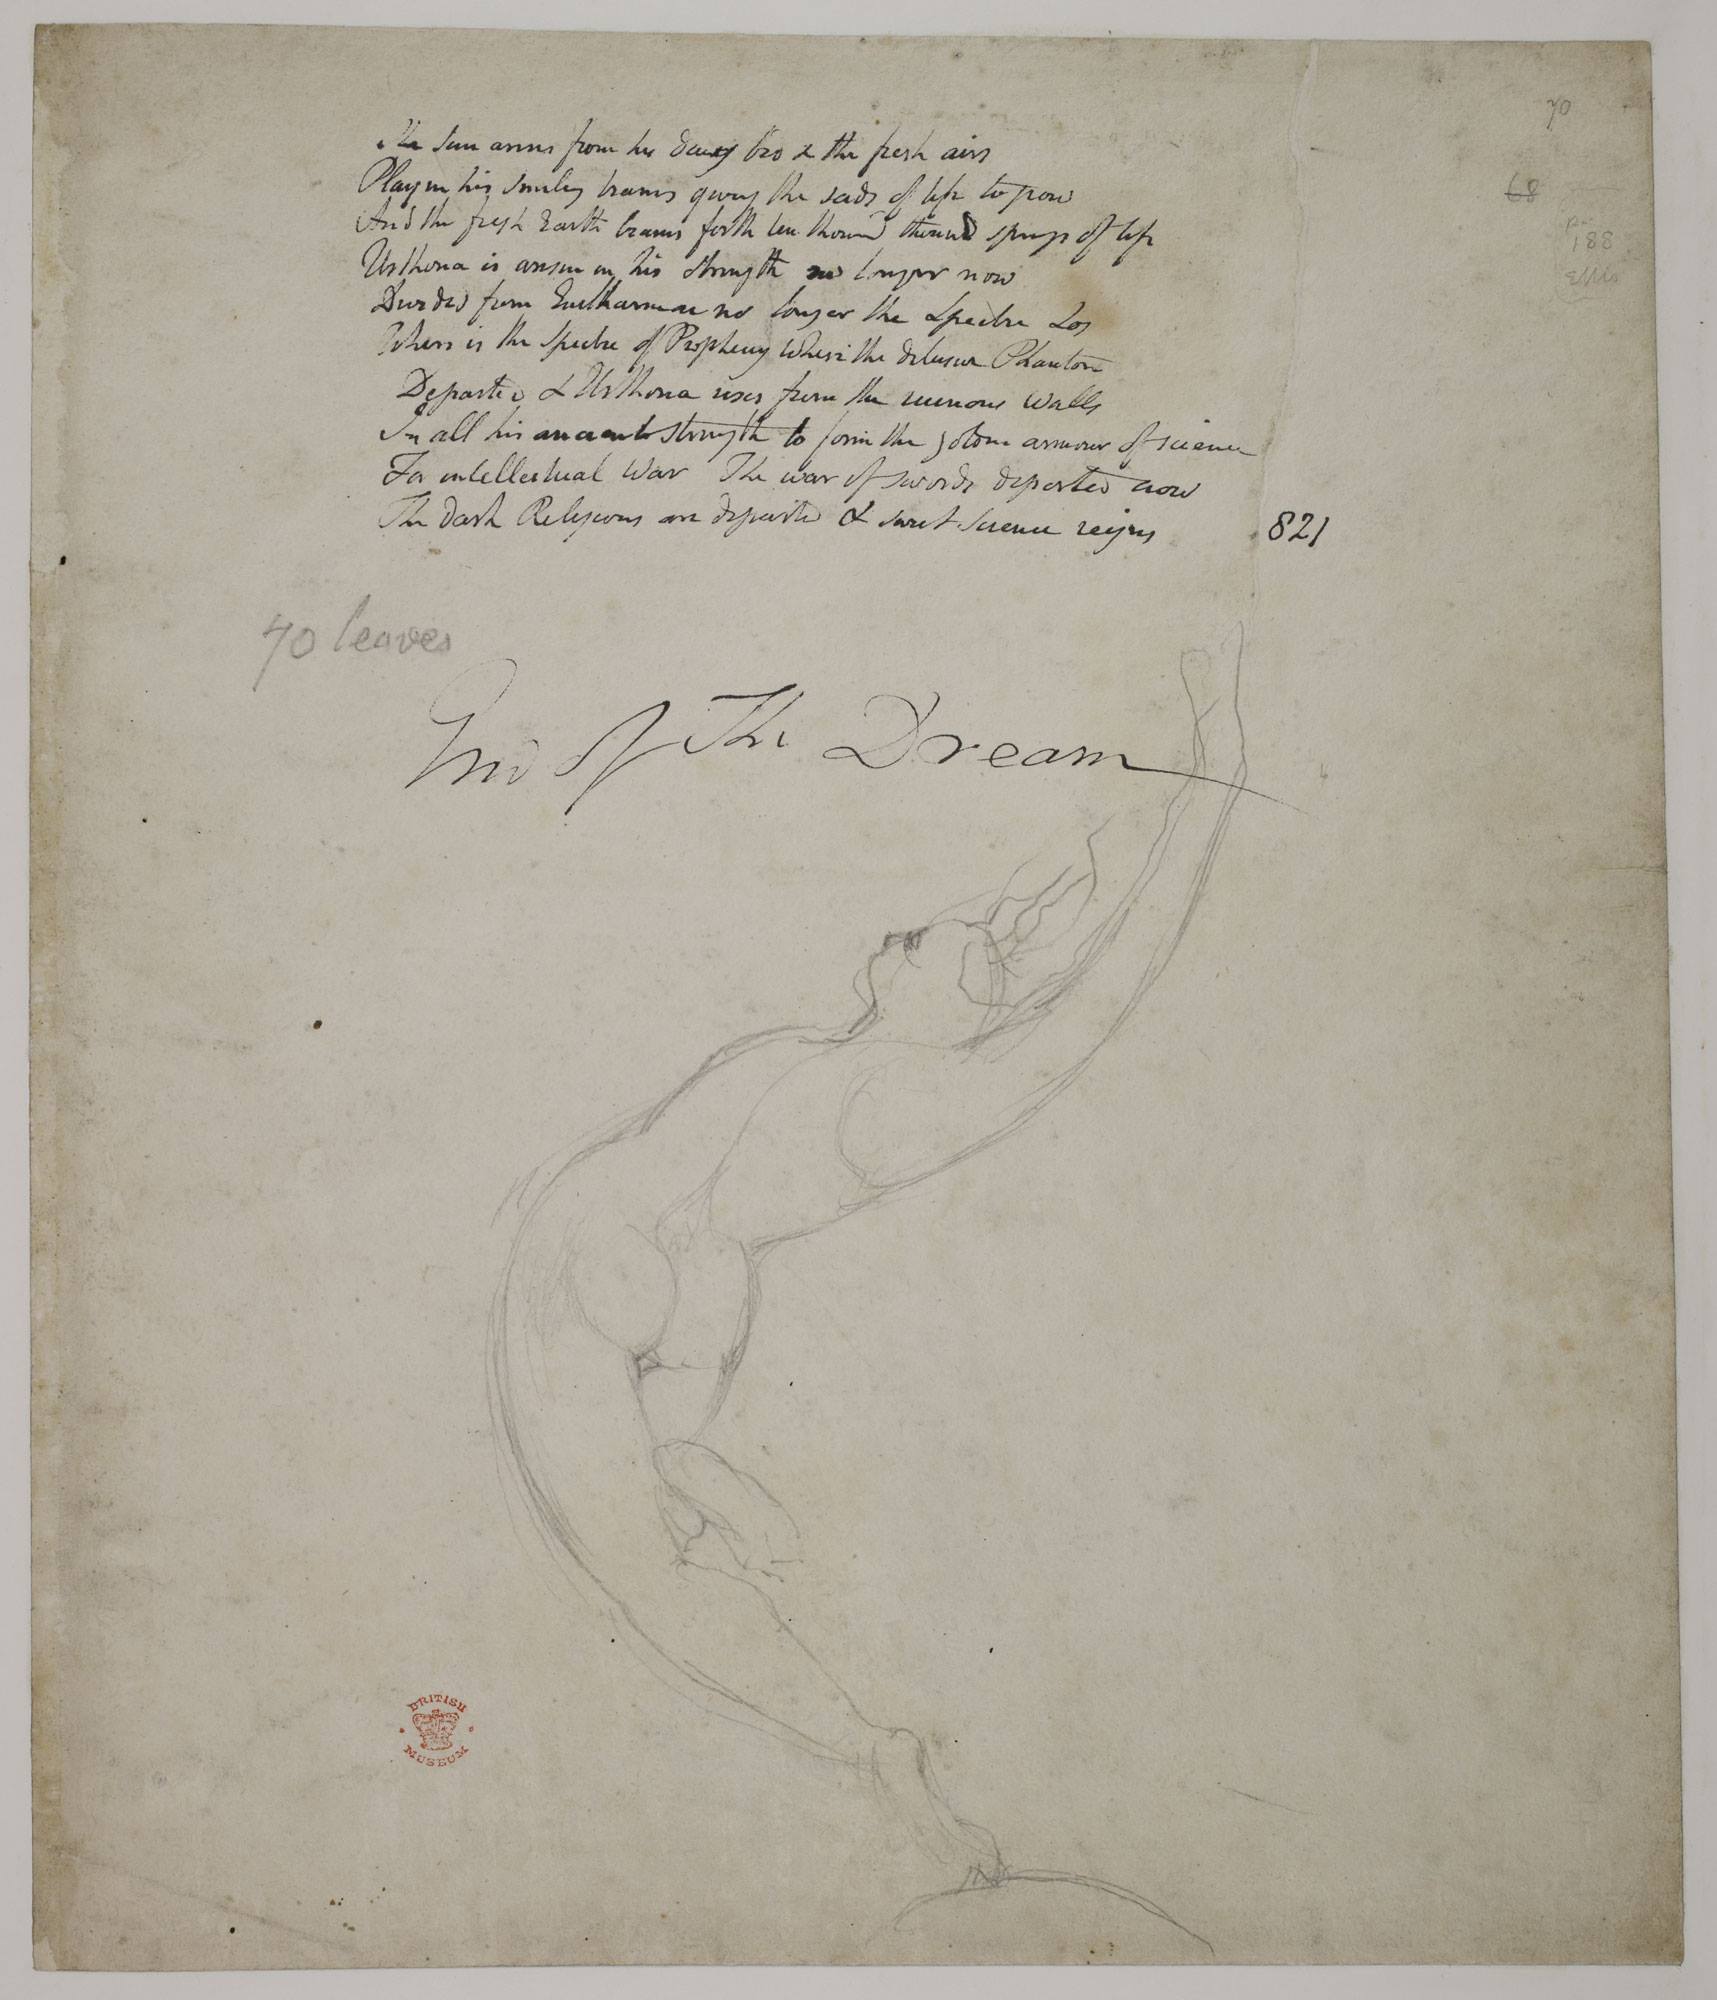 70
68
188
Ellis
The Sun arises from his dewy bed & the fresh airs
Play in his smiling beams giving the seeds of life to grow
And the fresh Earth beams forth ten thousand thousand springs of life
Urthona is arisen in his strength no longer now
Divided from Enitharmon no longer the Spectre Los
Where is the Spectre of Prophecy where the delusive Phantom
Departed & Urthona rises from the ruinous walls
In all his ancient strength to form the golden armour of science
For intellectual War The war of swords departed now
The dark Religions are departed & sweet Science reigns 821
70 leaves
End of The Dream
BRITISH
MUSEUM